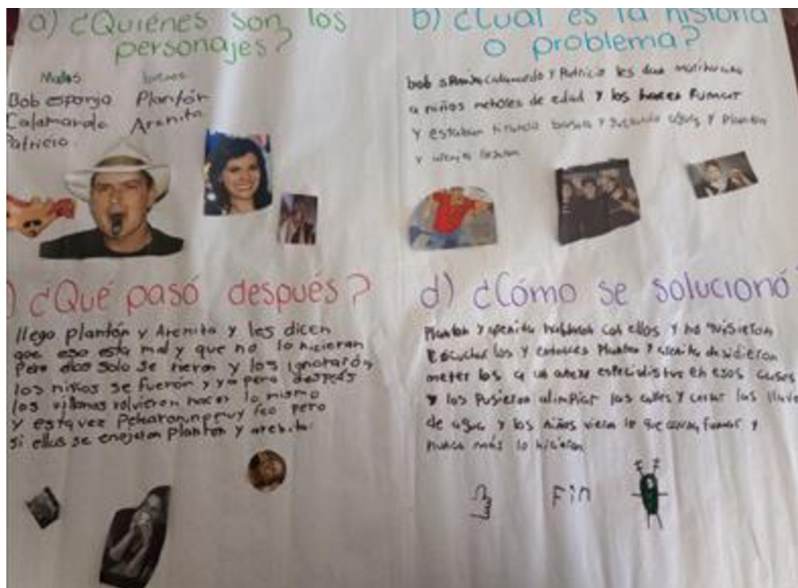 a) ¿Quiénes son los
personajes?
Malos buenos
Bob esponja Plantón
Calamardo Arenita
Patricio.
b) ¿Cuál es la historia
o problema?
bob calamardo y Patricio les dan
a niños de edad y los hacen Fumar
y estaban tirando basura y agua y Planton
y
) ¿Qué pasó después?
llego plantón y Arenita y les dicen
que eso esta mal y que no lo hicieran
Pero ellos solo se rieron y los ignorarón
los niños se fuerón y ya pero
los villanos volvieron hacer lo mismo
y esta vez muy feo pero
si ellos se enojaron Planton y arenita.
d) ¿Cómo se solucionó
Planton y arenita hablaron con ellos y no quisieron
Escuchar los y entonces Planton y arenita desidieron
meter los a un en esos casos
y los pusieron alimpiar las calles y cerrar las llave
de agua y los niños vieron lo que causa fumar y
nunca más lo hicieron
Fin